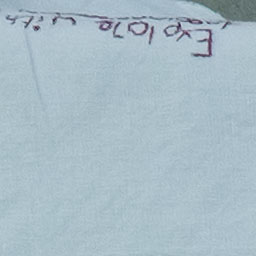 Explore with